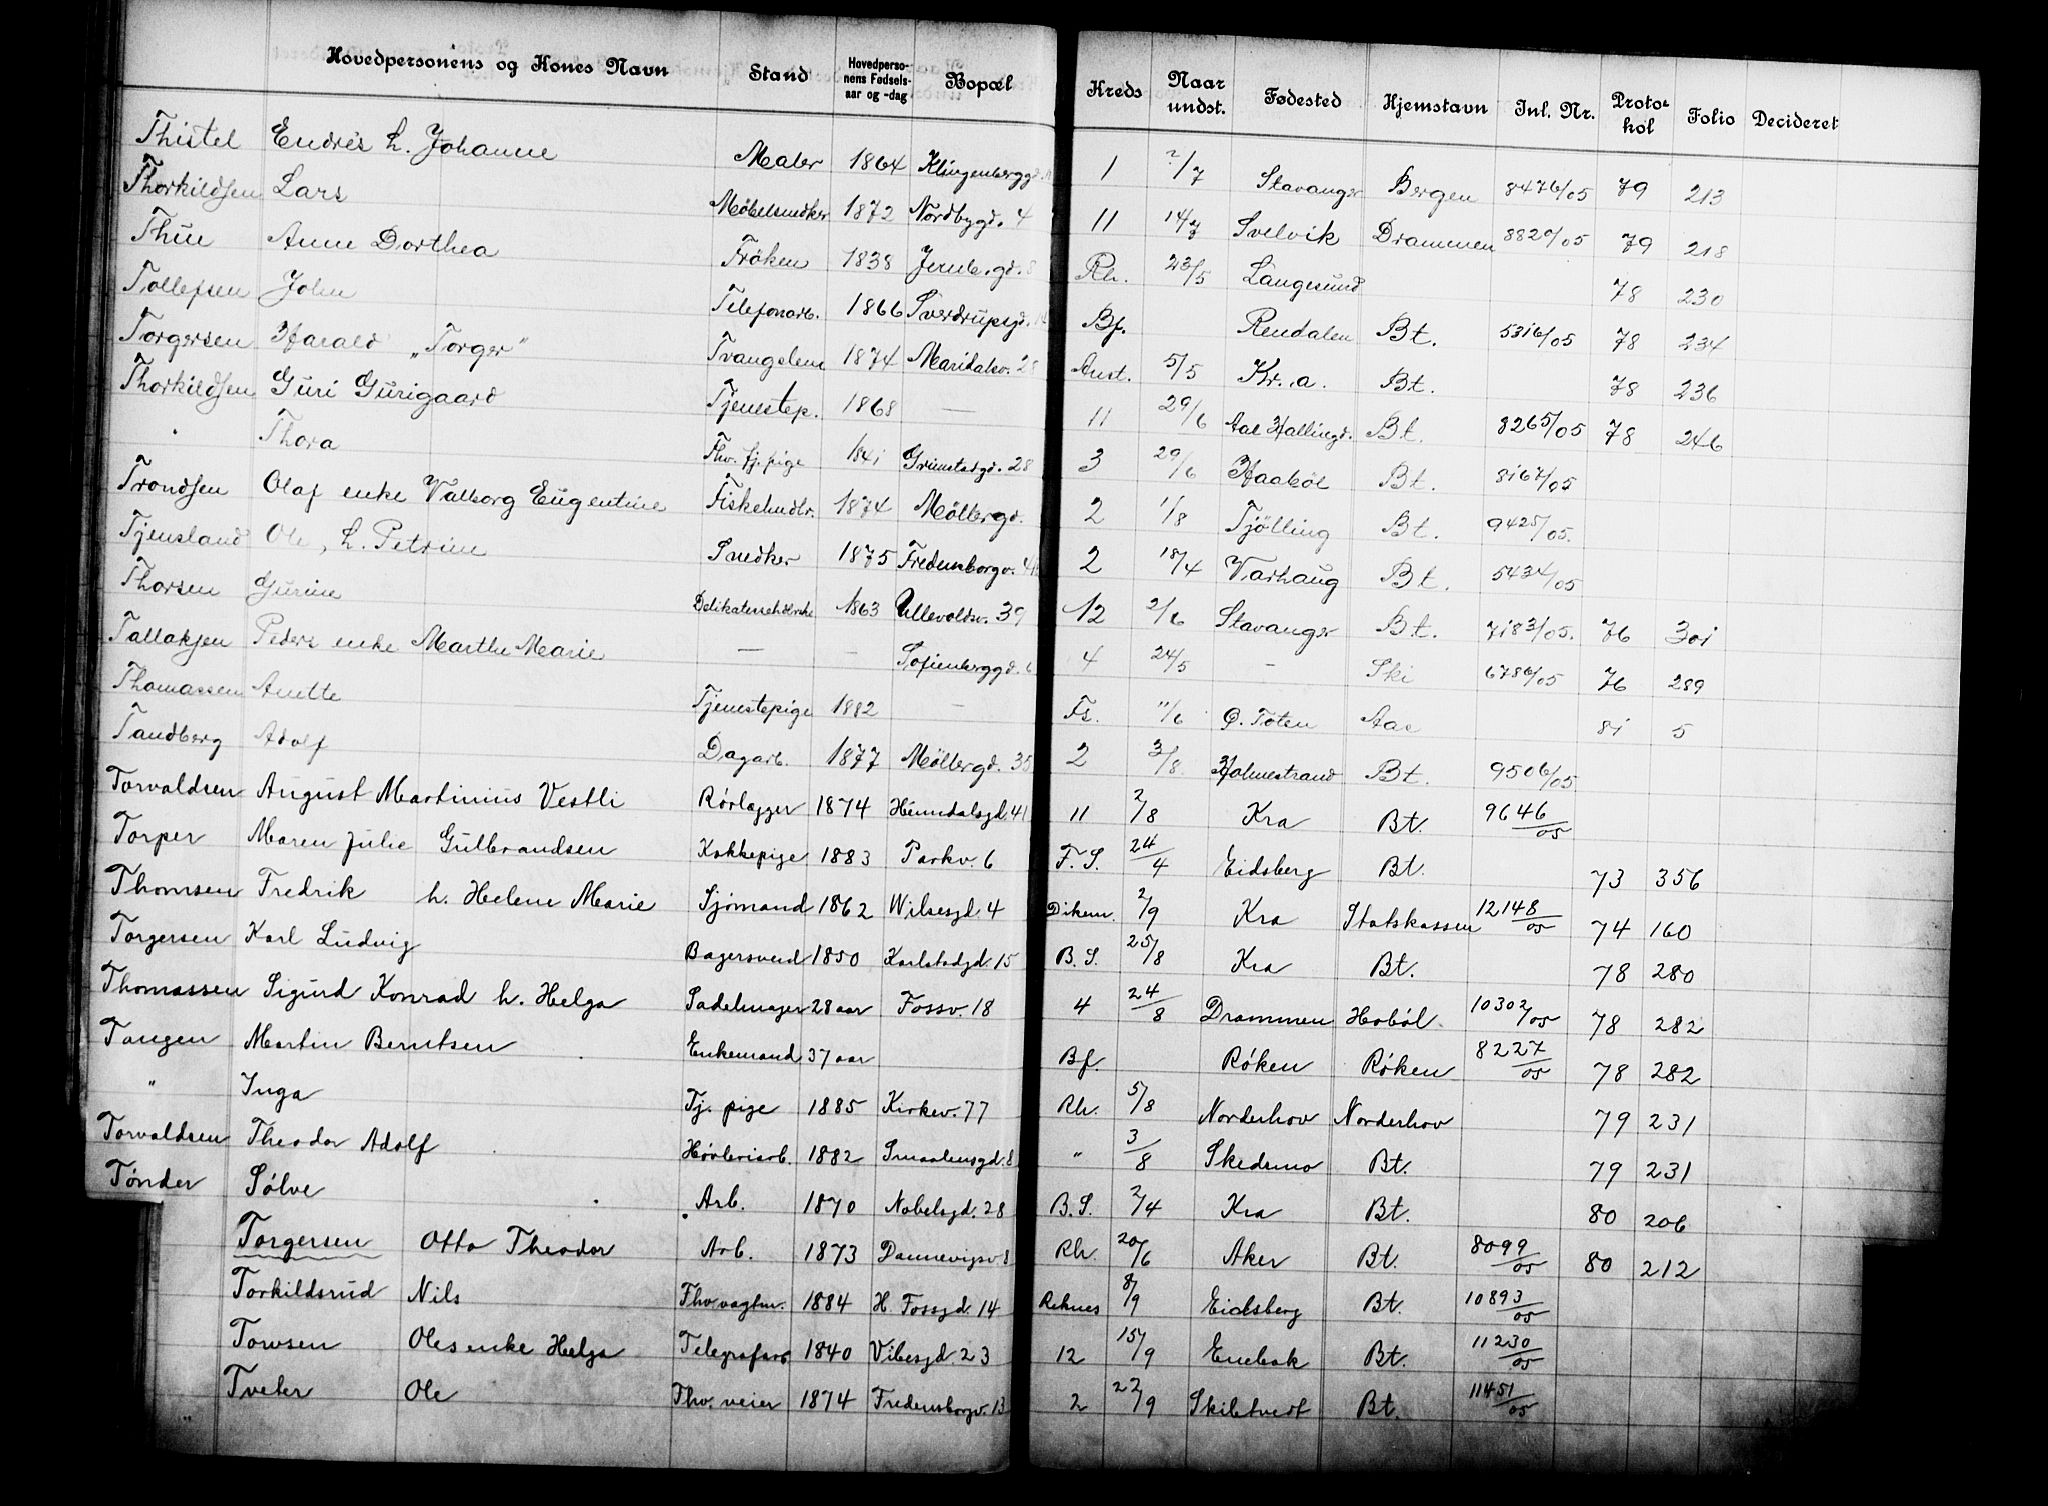 Hovedpersonens og Kones Navn Stand Hovedperso-nens Fødsels-aar og -dag Bopæl Kreds Naar undst. Fødested Hjemstavn Inl. Nr. Proto-kol Folio Decideret
Thistel Endre's h. Johanne Maler 1864 Klingenberggd. 1 ?/7 Stavanger Bergen 8476/05 79 213
Thorkildsen Lars Møbelsnedker 1872 Nordbygd. 4 11 14/7 Svelvik Drammen 8820/05 79 218
Thue Anne Dorthea Frøken 1838 Jernb.gd. 8 Rh. 23/5 Langesund 78 230
Tollefsen John Telefonarb. 1866 Sverdrupsgd. Bf. Rendalen Bt. 5316/05 78 234
Torgersen Harald "Torger" Tvangslem 1874 Maridalsv. 28 Anst. 5/5 Kr.a. Bt. 78 236
Thorkildsen Guri Gurigaard Tjenestep. 1868 — 11 29/6 Aal Hallingd. Bt. 8265/05 78 246
" Thora Fhv. tj. pige 1841 Grimstadgd. 28 3 29/6 Haabøl Bt. 8167/05
Trondsen Olaf enke Valborg Eugentine Fiskehndlr. 1874 Møllergd. 2 1/8 Tjølling Bt. 9425/05.
Tjensland Ole, h. Petrine Snedker 1875 Fredensborgv. 2 18/4 Varhaug Bt. 5434/05
Thorsen Gurine Delikatessehdlrske 1863 Ullevoldsv. 39 12 2/6 Stavanger Bt. 7183/05. 76 301
Tallaksen Peders enke Marthe Marie — — Sofienberggd. 6 4 24/5 — Ski 6786/05 76 289
Thomassen Anette Tjenestepige 1882 — Fs. 11/6 Ø. Toten Aas 81 5
Tandberg Adolf Dagarb. 1877 Møllergd. 35 2 3/8 Holmestrand Bt. 9506/05
Torvaldsen August Martinius Vestli Rørlægger 1874 Heimdalsgd. 41 11 2/8 Kra Bt. 9646/05
Torper Maren Julie Gulbrandsen Kokkepige 1883 Parkv. 6 F.S. 24/4 Eidsberg Bt. 73 356
Thomsen Fredrik h. Helene Marie Sjømand 1862 Wilsesgd. 4 Dikem. 2/9 Kra Statskassen 12148/05 74 160
Torgersen Karl Ludvig Bagersvend 1850 Karlstadgd. 15 B.S. 25/8 Kra Bt. 78 280
Thomassen Sigurd Konrad h. Helga Sadelmager 28 aar Fossv. 18 4 24/8 Drammen Hobøl. 10302/05 78 282
Tangen Martin Berntsen Enkemand 37 aar Bf. Røken Røken 8227/05 78 282
" Inga Tj. pige 1885 Kirkev. 77 Rh. 5/8 Norderhov Norderhov 79 231
Torvaldsen Theodor Adolf Høvleriarb. 1882 Smaalensgd. 8 " 3/8 Skedsmo Bt. 79 231
Tønder Sølve Arb. 1870 Nobelsgd. 28 B.S. 2/4 Kra Bt. 80 206
Torgersen Otto Theodor Arb. 1873 Dannevigsv. 8 Rh. 20/6 Aker Bt. 8099/05 80 212
Torkildsrud Nils Fhv. vagtm. 1884 H Fossgd. 14 Reknes 8/9 Eidsberg Bt. 10893/05
Towsen Oles enke Helga Telegrafarb. 1840 Vibesgd 23 12 15/9 Enebak Bt. 11230/05
Tveter Ole Fhv. veier 1874 Fredensborgv. 13 2 22/9 Skibtvedt Bt. 11451/05